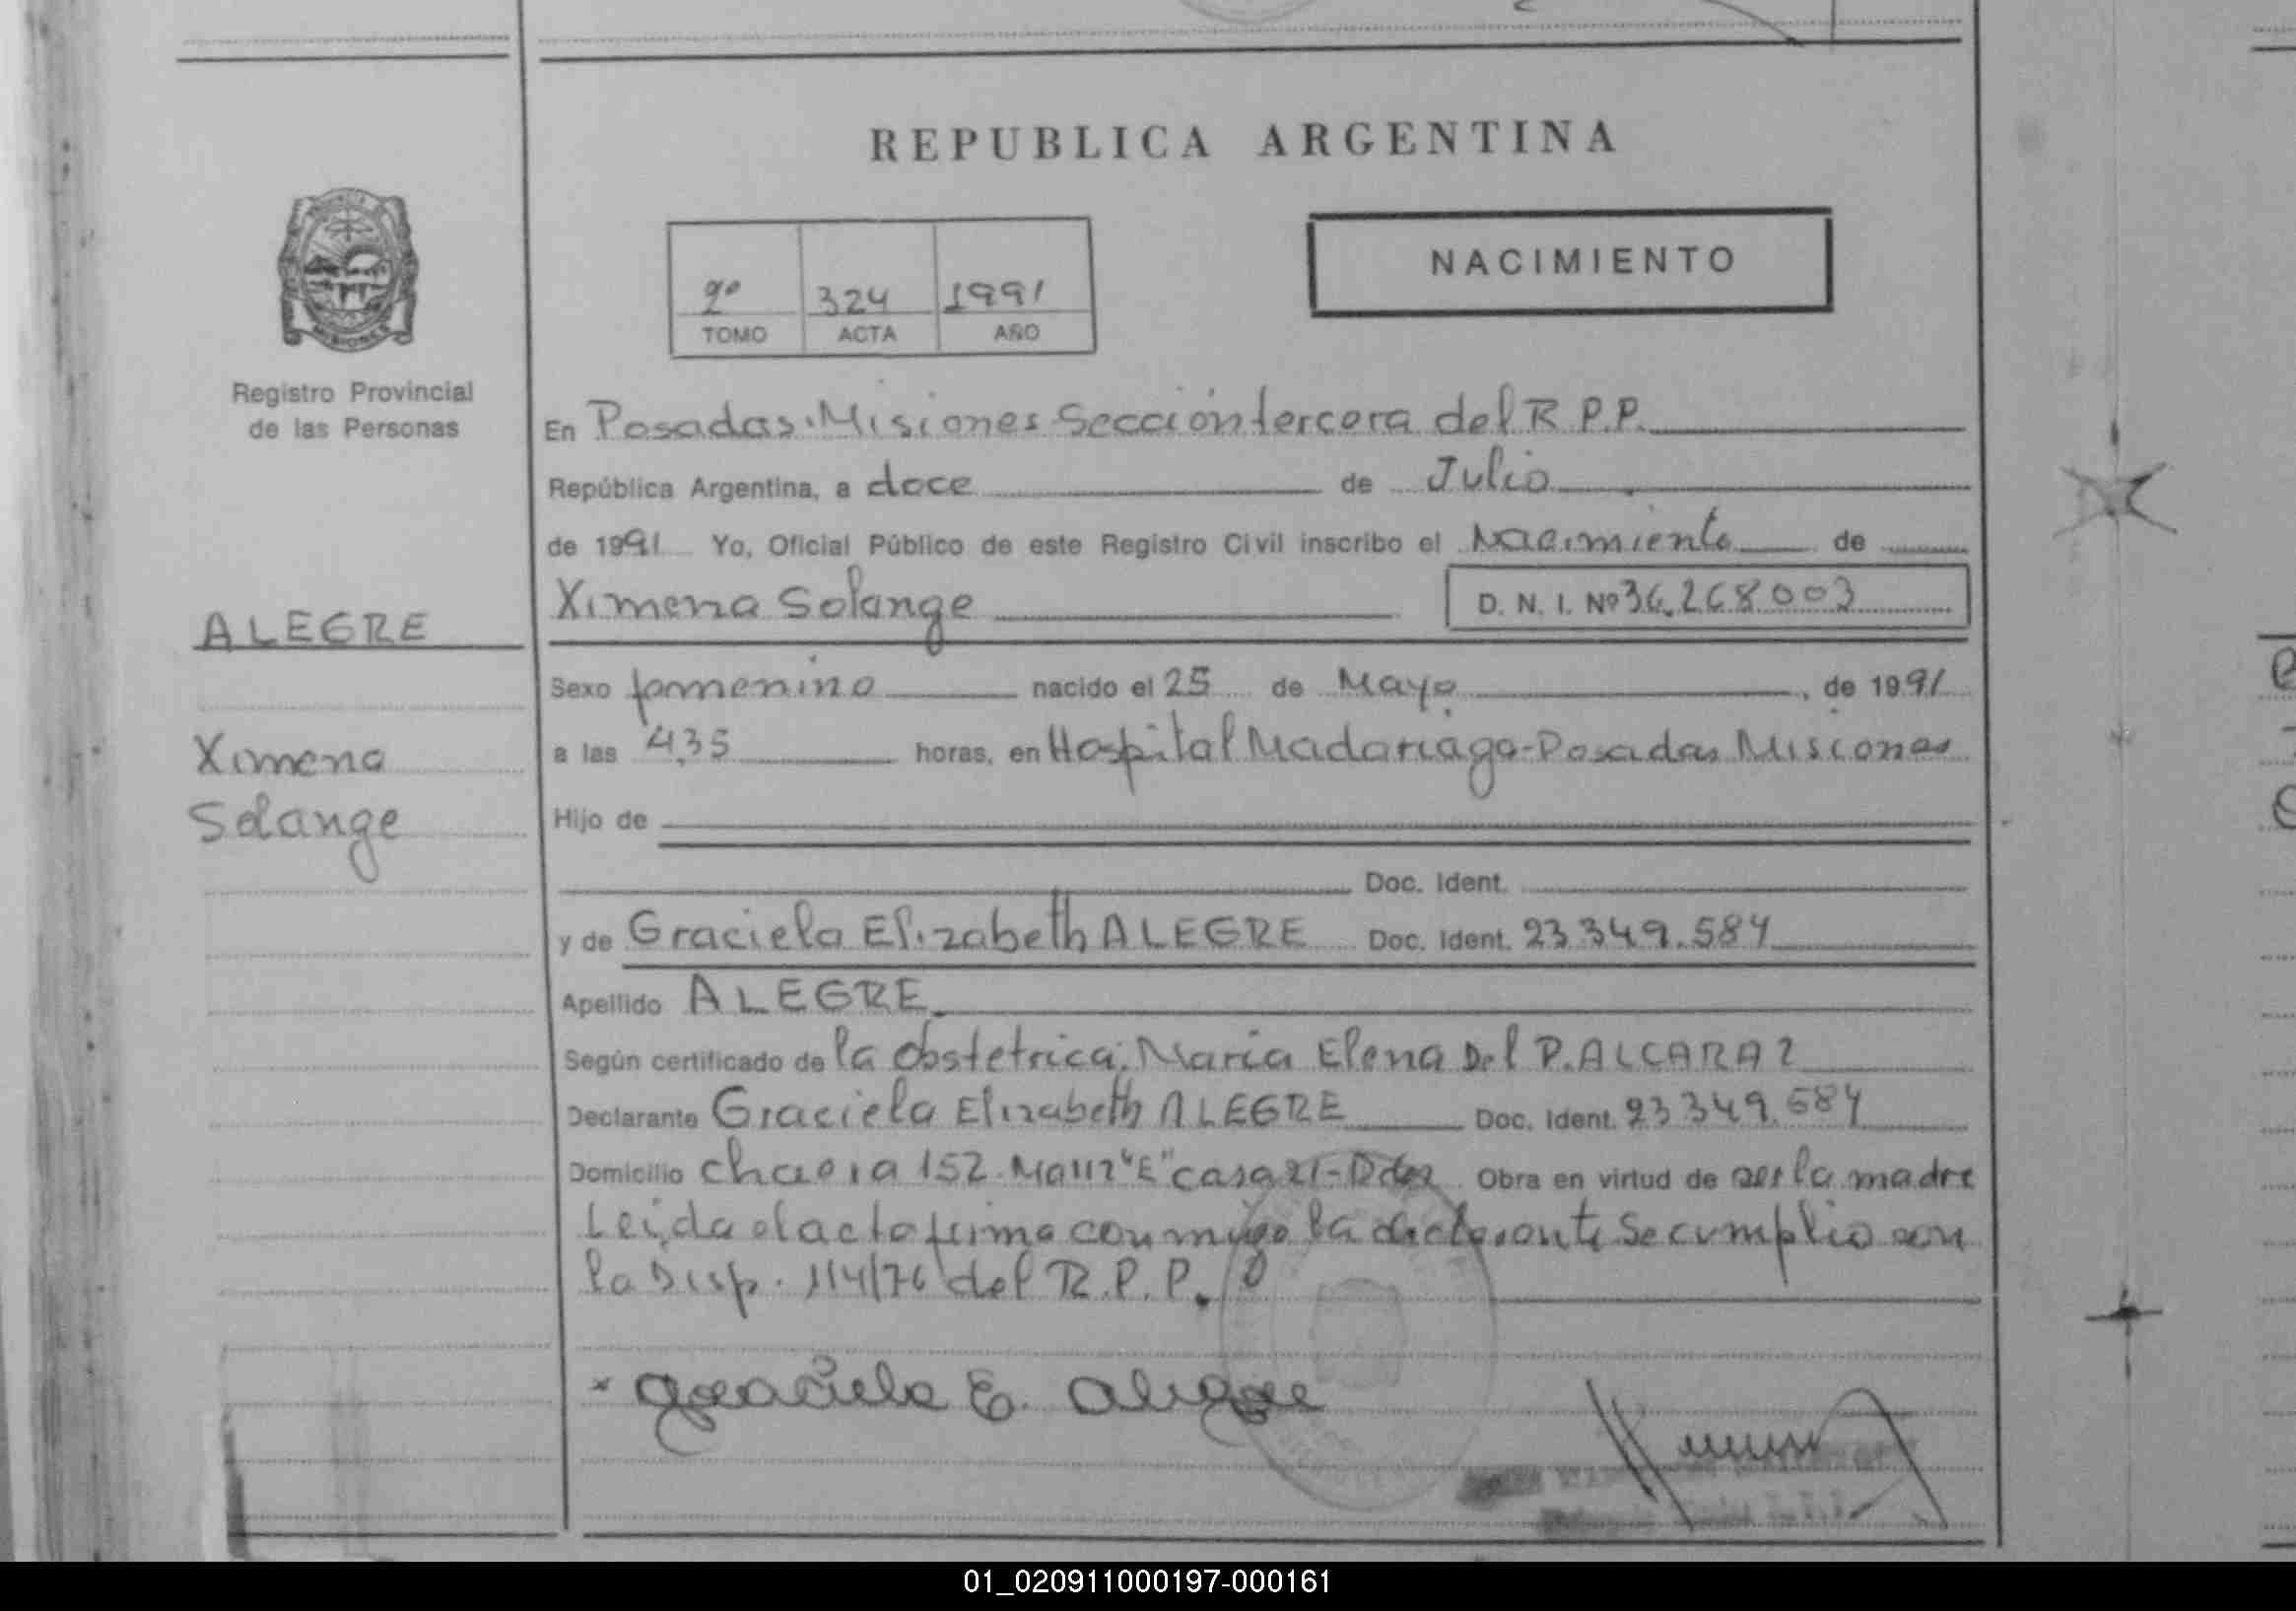 REPUBLICA ARGENTINA
NACIMIENTO
2º 324 1991
TOMO ACTA AÑO
MISIONES
Registro Provincial
de las Personas
ALEGRE
Ximena
Solange
En Posadas. Misiones Sección tercera del R.P.P.
República Argentina, a doce de Julio
de 1991 Yo, Oficial Público de este Registro Civil inscribo el Nacimiento de
Ximena Solange D. N. I. Nº 36.268003
Sexo femenino nacido el 25 de Mayo, de 1991
a las 4,35 horas, en Hospital Madariaga-Posadas Misiones
Hijo de
Doc. Ident.
y de Graciela Elizabeth ALEGRE Doc. Ident. 23.349.584
Apellido ALEGRE
Según certificado de la obstetrica: Maria Elena Del P. ALCARAZ
Declarante Graciela Elizabeth ALEGRE Doc. Ident. 23349.584
Domicilio chacra 152. Manz "E" casa 21- Obra en virtud de ser la madre
Leida el acta firma conmigo la declarante Se cumplio con
la Disp. 114/76 del R.P.P.
Graciela E. Alegre
01_020911000197-000161